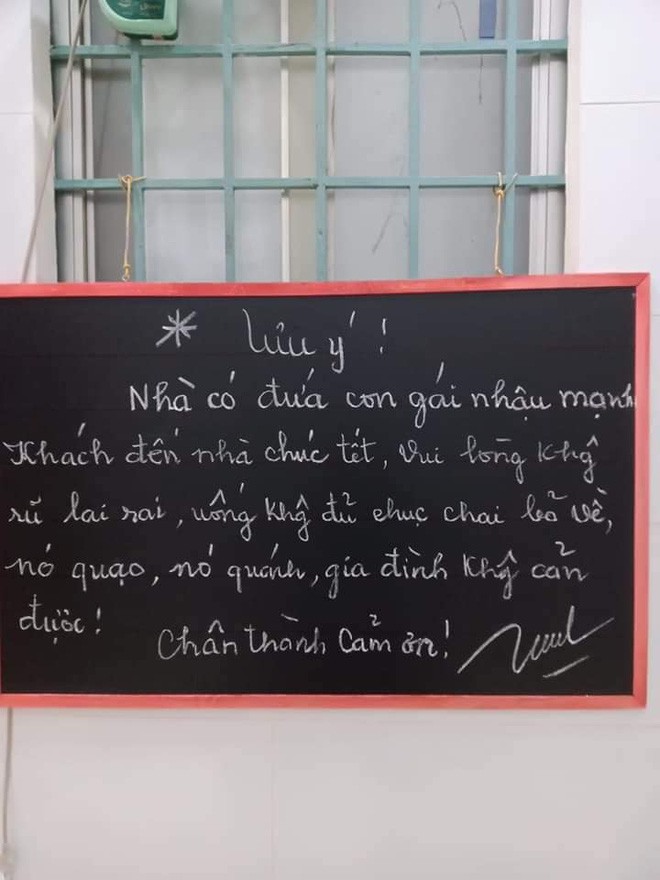 * Lưu ý !
Nhà có đứa con gái nhậu mạnh
Khách đến nhà chúc tết, vui lòng khg
rũ lai rai, uống khg đủ chục chai bỏ về,
nó quạo, nó quánh, gia đình khg cản
được!
Chân thành cảm ơn!